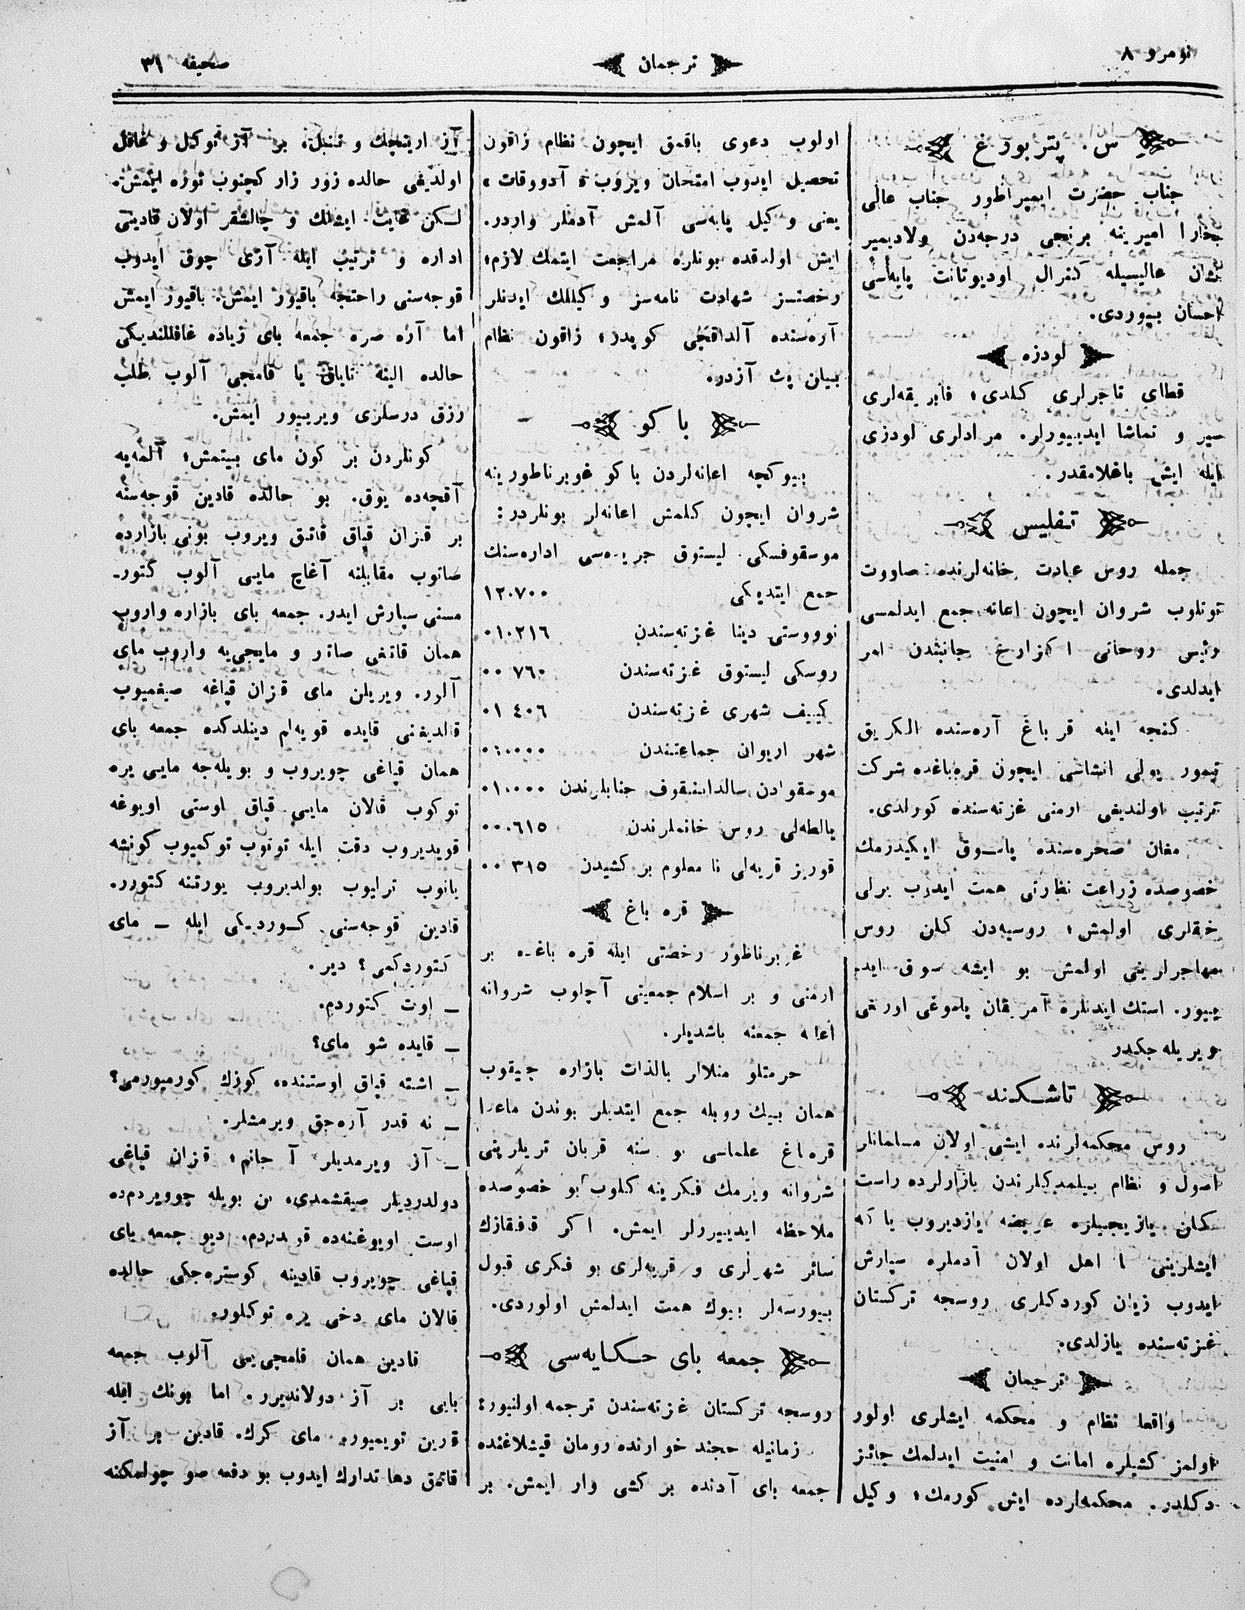 نومرو ٨
ترجمان
صحيفه ٣١
س. پتربورغ
جناب حضرت ايمپراطور جناب عالى
بخارا اميرينه برنجى درجه‌دن ولاديمير
نشان عاليسيله گنرال اوديوتانت پايه‌سى
احسان بيوردى.
لودزه
قطاى تاجرلرى كلدى؛ فابريقه‌لرى
سير و تماشا ايدييورلر. مرادلرى لودزى
ايله ايش باغلامقدر.
تفليس
جمله روس عبادت خانه‌لرنده صاووت
توتلوب شروان ايچون اعانه جمع ايدلمسى
رئيس روحانى اكزارخ جانبندن امر
ايدلدى.
كنجه ايله قرباغ آره‌سنده الكتريق
تيمور يولى انشاسى ايچون قره‌باغده شركت
ترتيب اولنديغى ارمنى غزته‌سنده كورلدى.
مغان صحره‌سنده پاموق ايكيدرمك
خصوصده زراعت نظارتى همت ايدوب برلى
خقلرى اولمش؛ روسيه‌دن كلن روس
مهاجرلرينى اولمش بو ايشه سوق ايد
ييور. استك ايدنلره آمريقان پاموغى اورغى
ويريله‌جكدر
تاشكند
روس محكمه‌لرنده ايشى اولان مسلمانلر
اصول و نظام بيلمدكلرندن بازارلرده راست
كلن يازيجيلره عريضه يازديروب يا كه
ايشلرينى نا اهل اولان آدملره سپارش
ايدوب زيان كوردكلرى روسجه تركستان
غزته‌سنده يازلدى.
ترجمان
واقعا نظام و محكمه ايشلرى اولور
اولمز كشيلره امانت و امنيت ايدلمك جائز
دكلدر. محكمه‌لرده ايش كورمك؛ وكيل
اولوب دعوى باقمق ايچون نظام زاقون
تحصيل ايدوب امتحان ويروب «آدووقات»
يعنى وكيل پايه‌سى آلمش آدملر واردر.
ايش اولدقده بونلره مراجعت ايتمك لازم؛
رخصتسز شهادت نامه‌سز وكيللك ايدنلر
آره‌سنده آلداقچى كوپدر؛ زاقون نظام
بيلن پك آزدر.
باكو
بيوكچه اعانه‌لردن باكو غوبرناطورينه
شروان ايچون كلمش اعانه‌لر بونلردر:
موسقوفسكى ليستوق جريده‌سى اداره‌سنك
جمع ايتديكى ١٢٠٧٠٠
نوووستى دينا غزته‌سندن ٠١٠٢١٦
روسكى ليستوق غزته‌سندن ٠٠٧٦٠
كييف شهرى غزته‌سندن ٠١٤٠٦
شهر اريوان جماعتندن
موسقوادن سالداتنيقوف جنابلرندن ٠١٠٠٠٠
يالطه‌لى روس خانملرندن ٠٠٠٦١٥
قوريز قريه‌لى نا معلوم بر كشيدن ٠٠٣١٥
قره باغ
غوبرناطور رخصتى ايله قره باغده بر
ارمنى و بر اسلام جمعيتى آچلوب شروانه
اعانه جمعنه باشديلر.
حرمتلو منلالر بالذات بازاره چيقوب
همان بيك روبله جمع ايتديلر بوندن ماعدا
قره‌باغ علماسى بو سنه قربان تريلرينى
شروانه ويرمك فكرينه كلوب بو خصوصده
ملاحظه ايدييورلر ايمش. اكر قافقازك
سائر شهرلرى و قريه‌لرى بو فكرى قبول
بيورسه‌لر بيوك همت ايدلمش اولوردى.
جمعه باى حكايه‌سى
روسجه تركستان غزته‌سندن ترجمه اولنيور:
زمانيله حجند خوارنده رومان قيشلاغنده
جمعه باى آدنده بر كشى وار ايمش. بر
آز اريتيجك و تنبل، بر آز توكل و غافل
اولديغى حالده زور زار كچنوب توره ايمش.
لكن غايت ايشلك و چالشقر اولان قادينى
اداره و ترتيب ايله آزى چوق ايدوب
قوجه‌سنى راحتجه باقيور ايمش. باقيور ايمش
اما آره صره جمعه باى زياده غافللنديكى
حالده البته تاياق يا قامچى آلوب طلب
رزق درسلرى ويرييور ايمش.
كونلردن بر كون ماى بيتمش؛ آلمه‌يه
آقچه‌ده يوق. بو حالده قادين قوجه‌سنه
بر قزان قپاق قاتيق ويروب بونى بازارده
صاتوب مقابلنه آغاچ مايى آلوب كتور-
مسنى سپارش ايدر. جمعه باى بازاره واروب
همان قاتيغى صاتر و مايجى‌يه واروب ماى
آلر. ويريلن ماى قزان قپاغه صيغميوب
قالديغنى قايده قويه‌لم دينلدكده جمعه باى
همان قپاغى چويروب و بويله‌جه مايى يره
توكوب قالان مايى قپاق اوستى اويوغه
قويديروب دقت ايله توتوب توكميوب كونشه
يانوب ترليوب بولديروب يورتنه كتورر.
قادين قوجه‌سنى كورديكى ايله — ماى
كتوردكمى؟ دير.
— اوت كتوردم.
— قايده شو ماى؟
— اشته قپاق اوستنده، كوزك كورميورمى؟
— نه قدر آره‌جق ويرمشلر.
— آز ويرمديلر آ خانم؛ قزان قپاغى
دولدرديلر صيقشمدى، بن بويله چوويردم‌ده
اوست اويوغنه‌ده قويدردم، ديو جمعه باى
قپاغى چويروب قادينه كوستره‌جكى حالده
قالان ماى دخى يره توكلور.
قادين همان قامچى‌يى آلوب جمعه
بايى بر آز دولانديرر. اما بونك ايله
قرين تويميور. ماى كرك. قادين بر آز
قاتيق دها تدارك ايدوب بو دفعه صو چولمكنه